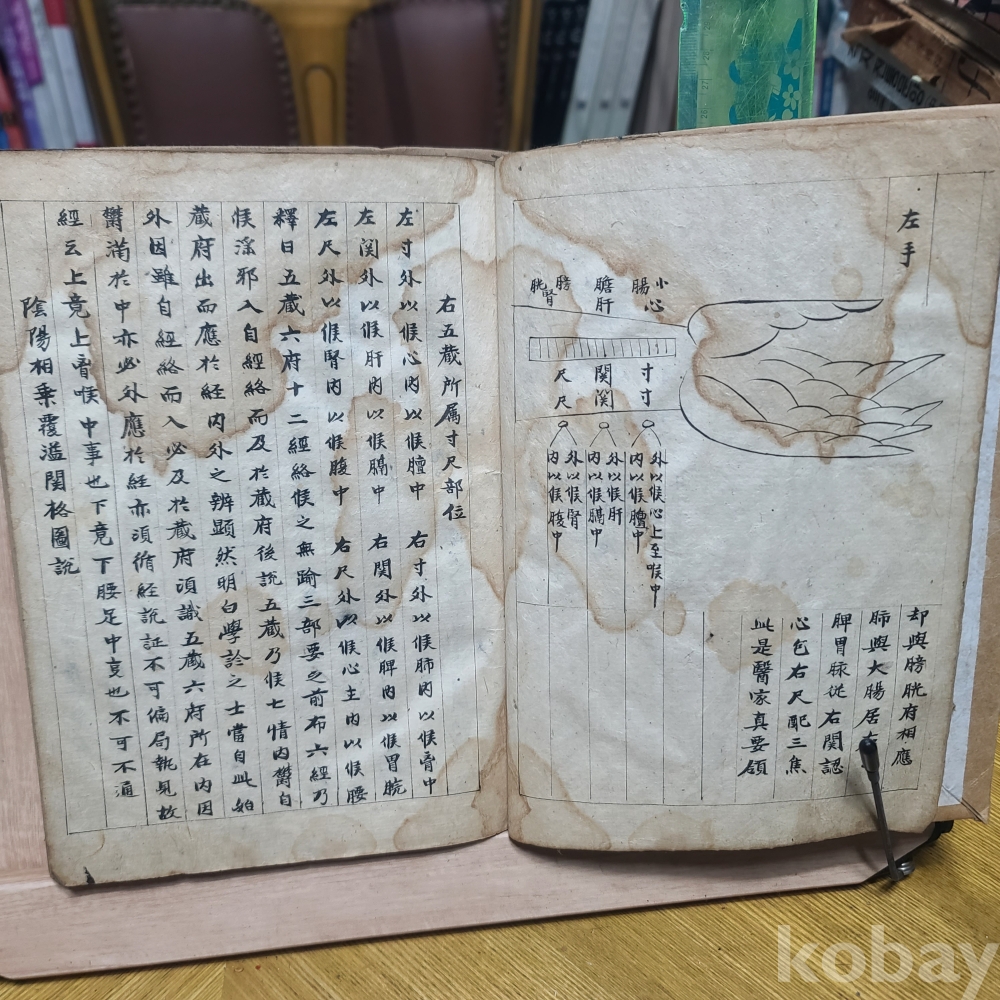 左手
小腸
心
膽
肝
膀胱
腎
寸寸
関渓
尺尺
外以候心上至喉中
内以候膻中
外以候肝
内以候膈中
外以候腎
内以候腹中
却與膀胱府相應
肺與大腸居右
脾胃脉従右関認
心包右尺配三焦
此是醫家真要領
右五蔵所属寸尺部位
左寸外以候心内以候膻中 右寸外以候肺内以候胷中
左関外以候肝内以候膈中 右関外以候脾内以候胃脘
左尺外以候腎内以候腹中 右尺外以候心主内以候腰
釋曰五蔵六府十二經絡候之無踰三部要之前布六經乃
候淫邪入自經絡而及於蔵府後説五蔵乃候七情内欝自
蔵府出而應於経内外之辨顕然明白學診之士當自此始
外因雖自經絡而入必及於蔵府湏識五蔵六府所在内因
欝滿於中亦必外應於経亦湏循経説証不可偏局執見故
經云上竟上胷喉中事也下竟下腰足中事也不可不通
陰陽相乗覆溢関格圖説
kobay